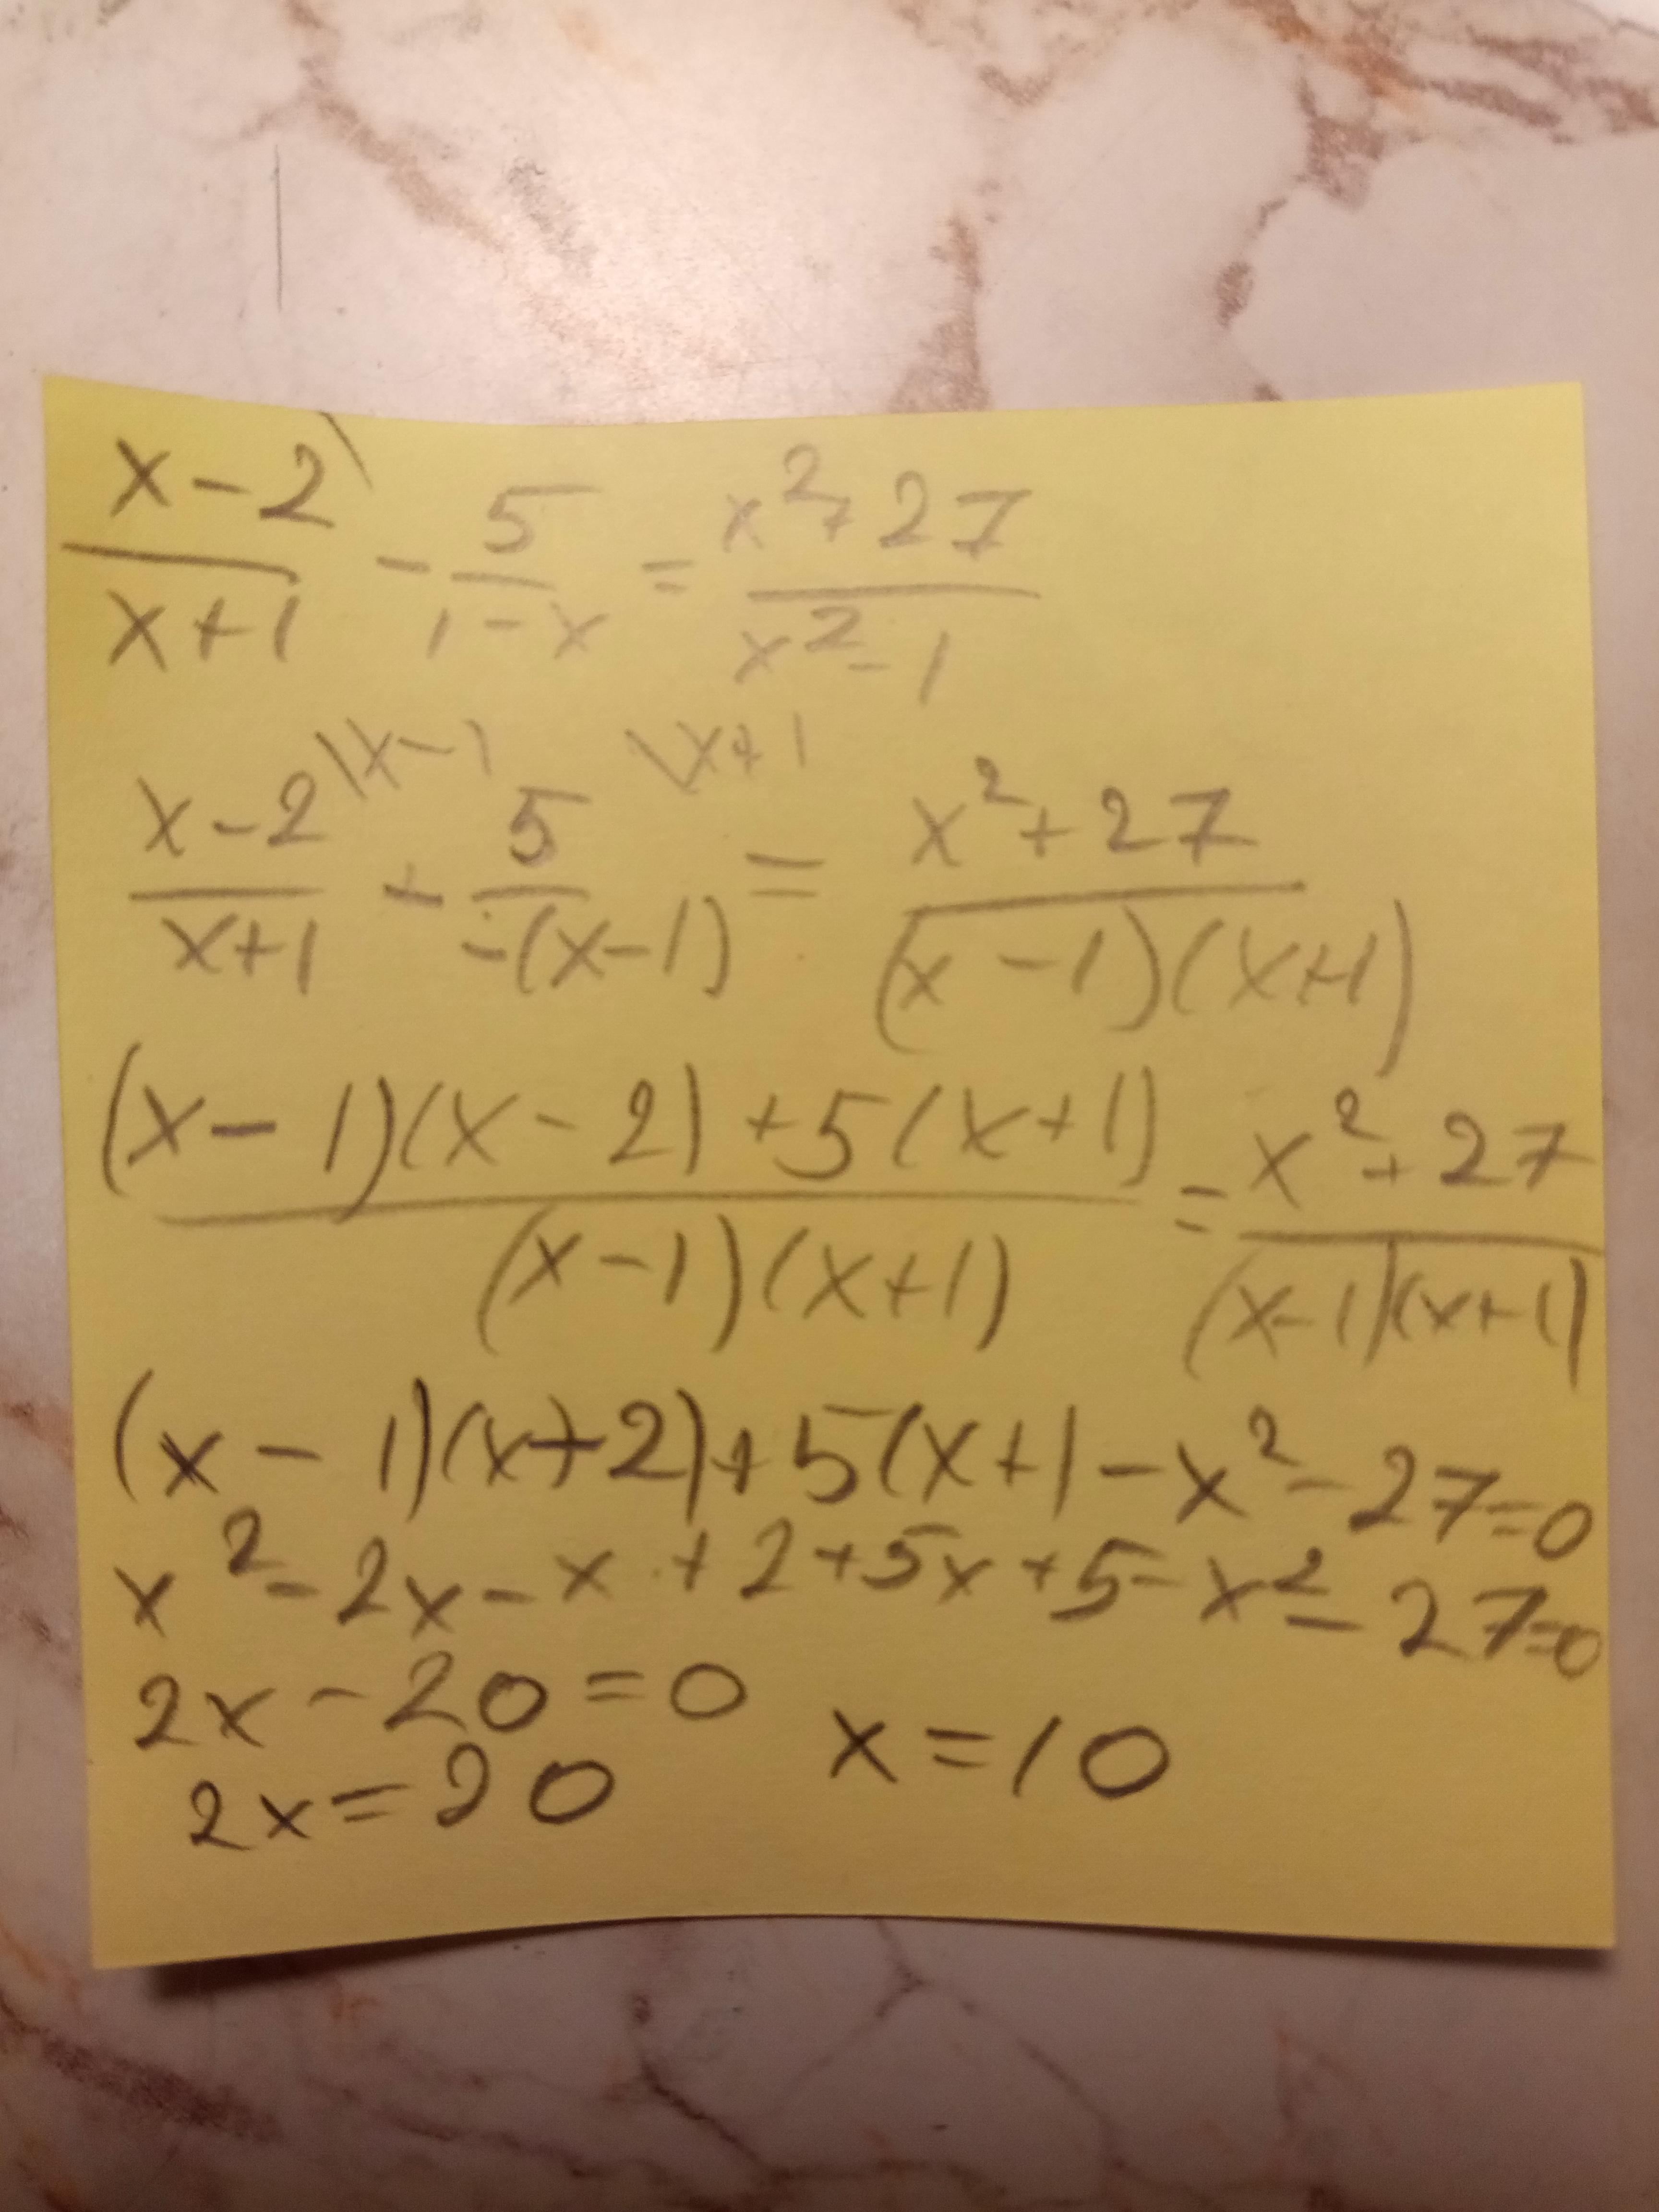 (x-2)/(x+1) - 5/(1-x) = (x²+27)/(x²-1)
(x-2)/(x+1) \x-1 - 5/(-(x-1)) \x+1 = (x²+27)/((x-1)(x+1))
((x-1)(x-2)+5(x+1))/((x-1)(x+1)) = (x²+27)/((x-1)(x+1))
(x-1)(x+2)+5(x+1)-x²-27=0
x²-2x-x+2+5x+5-x²-27=0
2x-20=0
2x=20 x=10